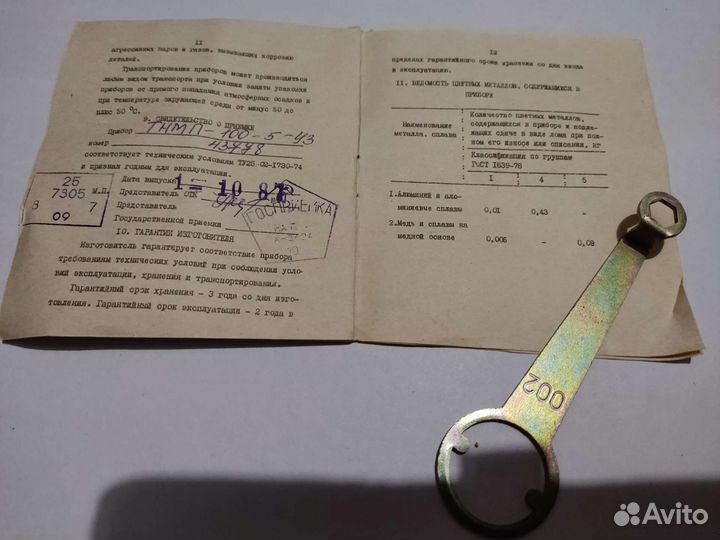 11
агрессивных паров и газов, вызывающих коррозию
деталей.
Транспортирование приборов может производиться
любым видом транспорта при условии защиты упаковки
приборов от прямого попадания атмосферных осадков и
при температуре окружающей среды от минус 50 до
плюс 50 °С.
9. СВИДЕТЕЛЬСТВО О ПРИЕМКЕ
Прибор ТНМП-100-5-У3
номер 43778
соответствует техническим условиям ТУ25-02-1730-74
и признан годным для эксплуатации.
Дата выпуска 1 - 10 87
М.П. Представитель ОТК
Представитель
Государственной приемки
25
7305
3 7
09
ГОСПРИЕМКА
10. ГАРАНТИИ ИЗГОТОВИТЕЛЯ
Изготовитель гарантирует соответствие прибора
требованиям технических условий при соблюдении усло-
вий эксплуатации, хранения и транспортирования.
Гарантийный срок хранения - 3 года со дня изго-
товления. Гарантийный срок эксплуатации - 2 года в
12
пределах гарантийного срока хранения со дня ввода
в эксплуатацию.
11. ВЕДОМОСТЬ ЦВЕТНЫХ МЕТАЛЛОВ, СОДЕРЖАЩИХСЯ В
ПРИБОРЕ
Наименование
металла, сплава
Количество цветных металлов,
содержащихся в приборе и подле-
жащих сдаче в виде лома при пол-
ном его износе или списании, кг
Классификация по группам
ГОСТ 1639-78
I 4 5
1.Алюминий и алю-
миниевые сплавы 0,01 0,43 -
2.Медь и сплавы на
медной основе 0,005 - 0,09
002
Avito